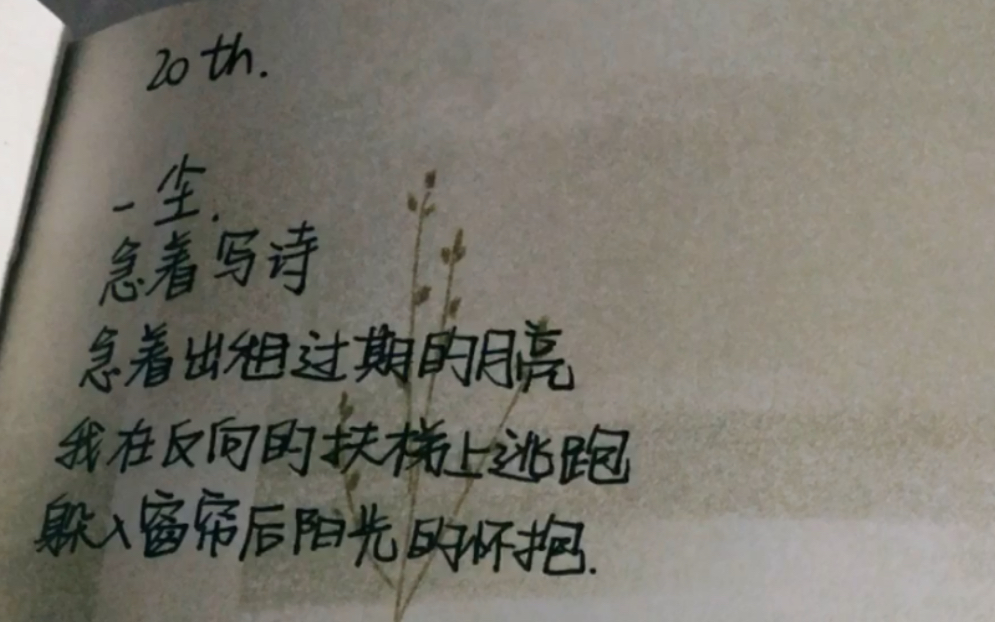 20th.
一尘.
急着写诗
急着出租过期的月亮
我在反向的扶梯上逃跑
躲入窗帘后阳光的怀抱.